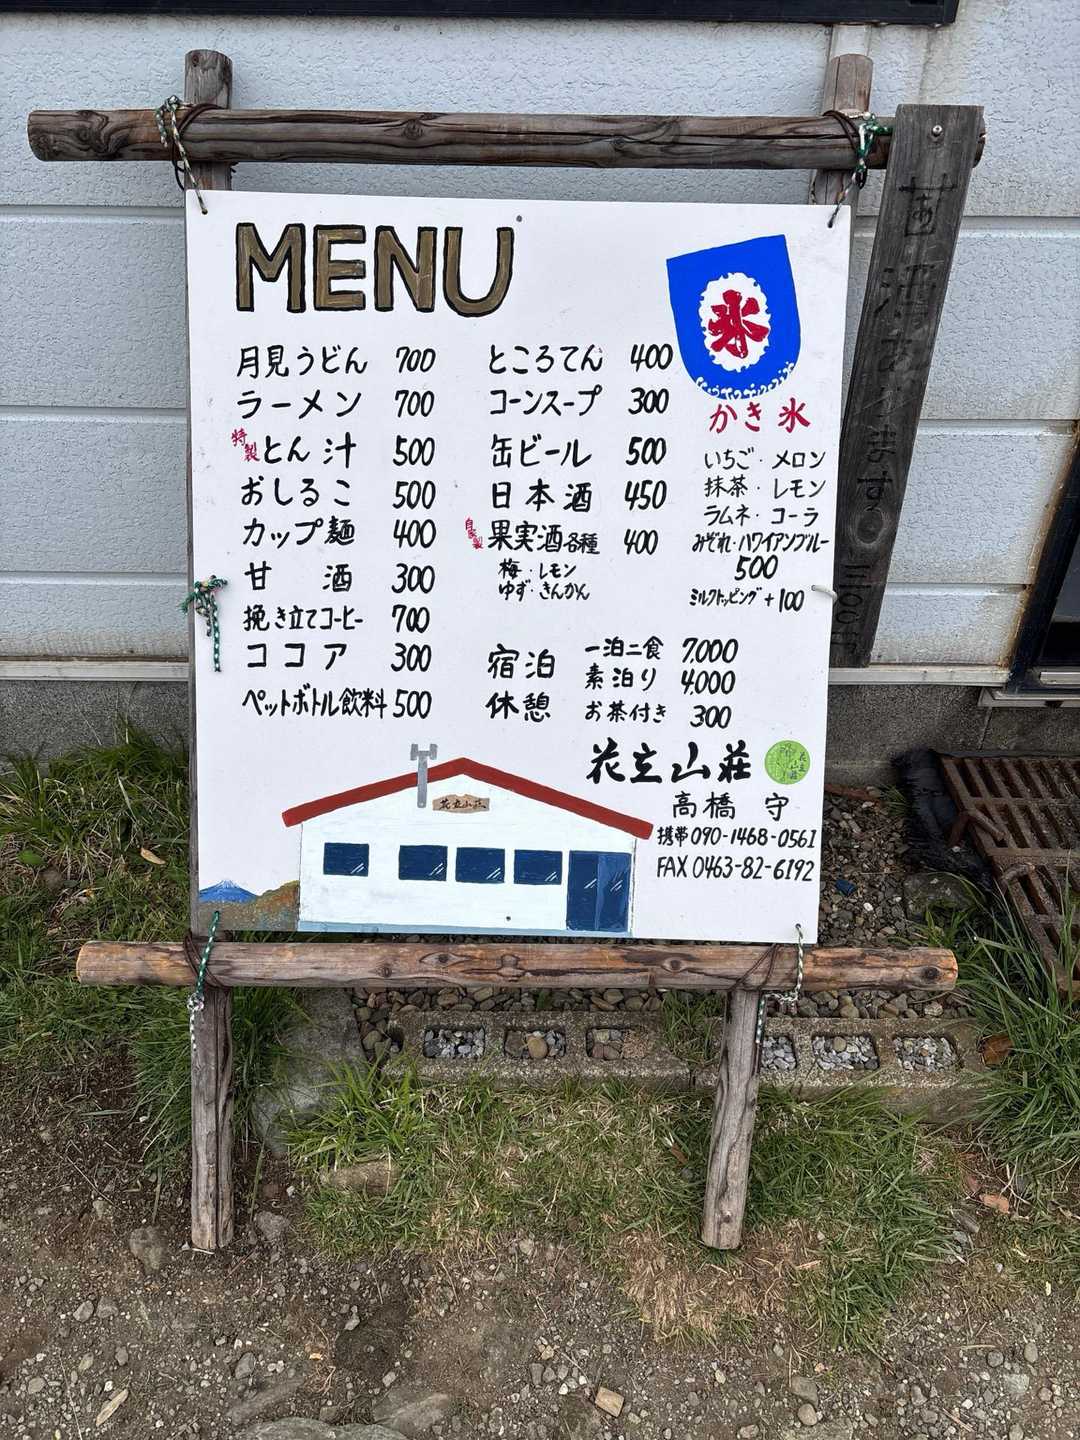 MENU
月見うどん 700
ラーメン 700
特製 とん汁 500
おしるこ 500
カップ麺 400
甘酒 300
挽き立てコーヒー 700
ココア 300
ペットボトル飲料 500
ところてん 400
コーンスープ 300
缶ビール 500
日本酒 450
自家製 果実酒各種 400
梅・レモン
ゆず・きんかん
氷
かき氷
いちご・メロン
抹茶・レモン
ラムネ・コーラ
みぞれ・ハワイアンブルー
500
ミルクトッピング +100
宿泊 一泊二食 7.000
素泊り 4.000
休憩 お茶付き 300
花立山荘
花立山荘
高橋 守
携帯 090-1468-0561
FAX 0463-82-6192
花立山荘
甘酒あります